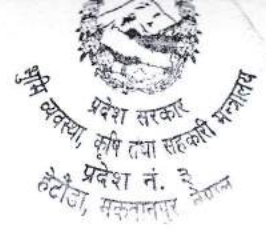 प्रदेश सरकार
भूमि व्यवस्था, कृषि तथा सहकारी मन्त्रालय
प्रदेश नं. ३
हेटौंडा, मकवानपुर नेपाल